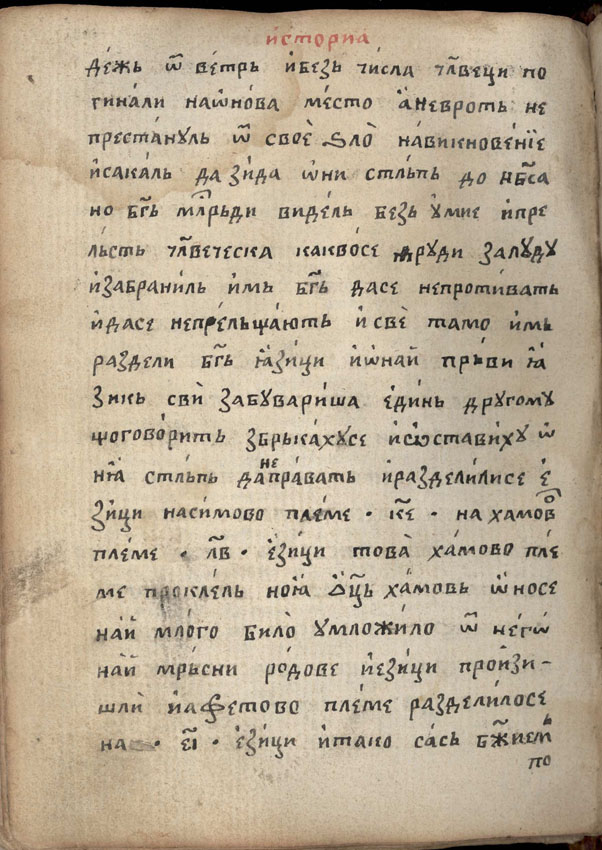 историа
дежь ѿ ветрь ибезь числа чл҃веци по
гинали наѡнова место аневроть не
престануль ѿ свое ѕло навикновение
исакаль да зида ѡни стльпь до нб҃са
но бг҃ь млрⷭ҇ьди видель безь умие ипре
льсть чл҃веческа каквосе друди залуду
изабраниль имь бг҃ь дасе непротивать
идасе непрельщають исве тамо имь
раздели бг҃ь ꙗзици иѡнаи прьви ꙗ
зикь сви забувариша единь другому
щоговорить збрькахусе исѡставиху ѡ
ниꙗ стльпь данеправать иразделилисе е
зици насимово племе · ке҃ · на хамовⷪ
племе · лв҃ · езици това хамово пле
ме проклель ноꙗ ѻц҃ь хамовь ѡносе
наи млого било умложило ѿ негѡ
наи мрьсни родове иезици произи-
шли иафетово племе разделилосе
на · еі҃ · езици итако сась бж҃иемь
по